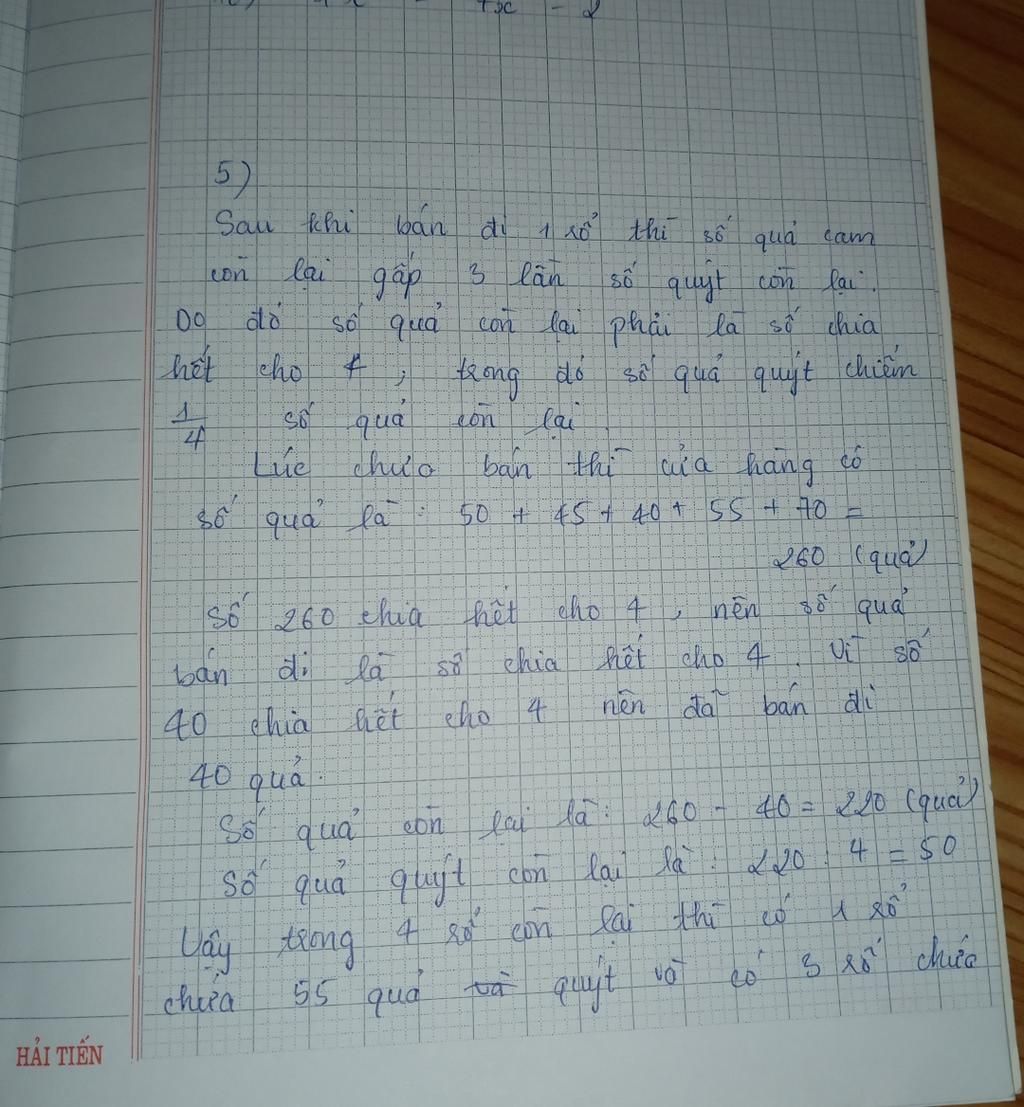 5)
Sau khi bán đi 1 rổ thì số quả cam
còn lại gấp 3 lần số quýt còn lại.
Do đó số quả còn lại phải là số chia
hết cho 4, trong đó số quả quýt chiếm
1/4 số quả còn lại.
Lúc chưa bán thì cửa hàng có
số quả là: 50 + 45 + 40 + 55 + 70 =
260 (quả)
Số 260 chia hết cho 4, nên số quả
bán đi là số chia hết cho 4. Vì số
40 chia hết cho 4 nên đã bán đi
40 quả.
Số quả còn lại là: 260 - 40 = 220 (quả)
Số quả quýt còn lại là: 220 : 4 = 50
Vậy trong 4 rổ còn lại thì có 1 rổ
chứa 55 quả và quýt và có 3 rổ chứa
HẢI TIẾN